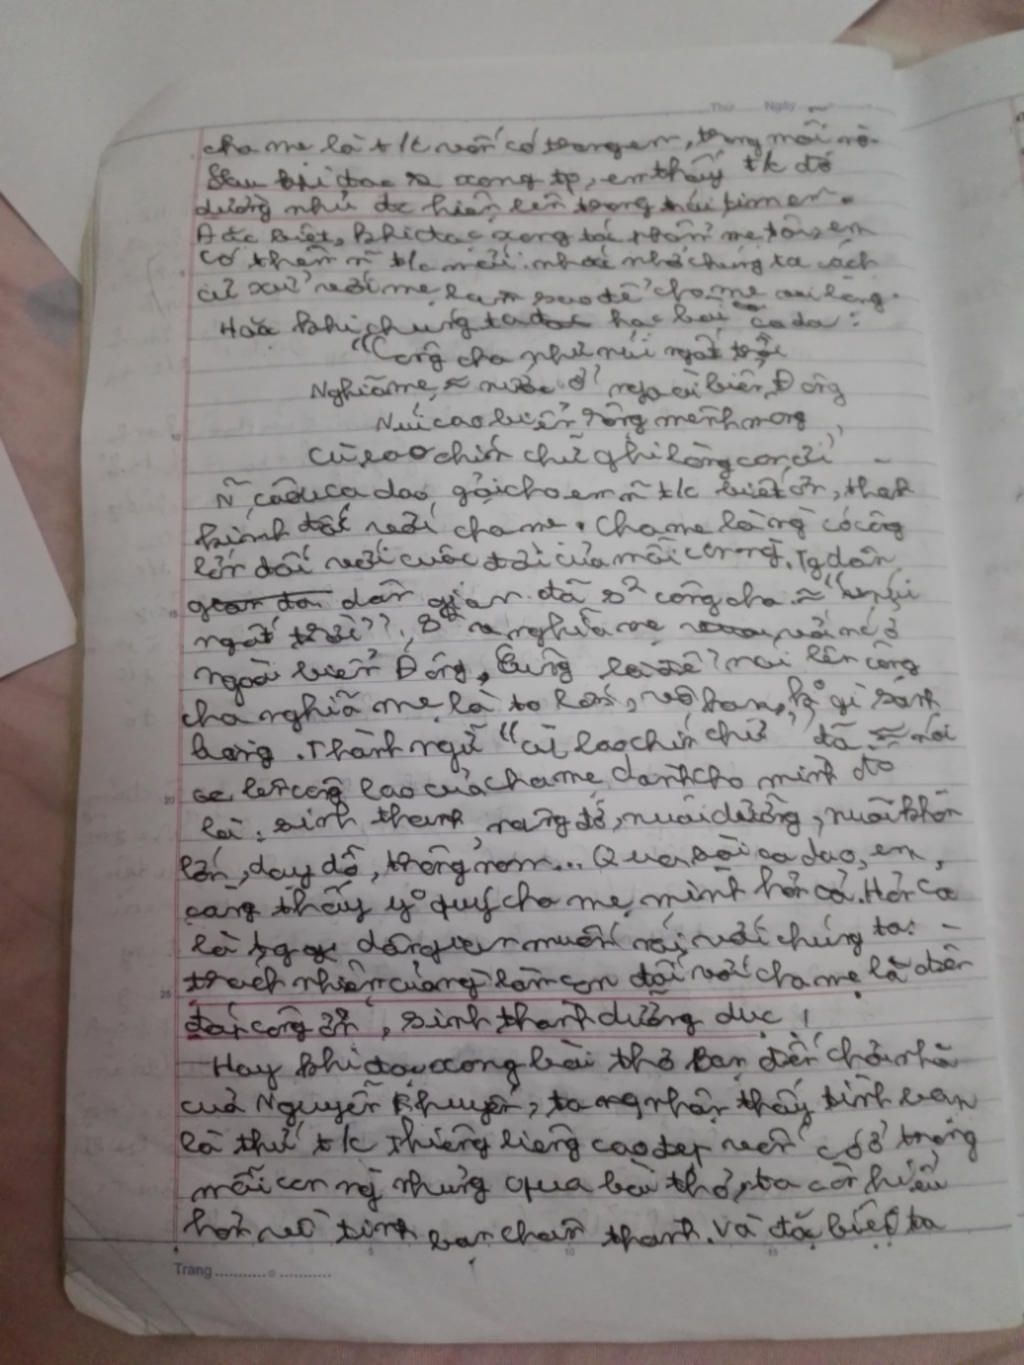 Thứ Ngày
cha mẹ là t/c vốn có trong em, trong mỗi
Sau khi đọc xong tp, em thấy t/c đó
dường như đc hiện lên trong trái tim em.
Đặc biệt, khi đọc xong tác phẩm mẹ tôi, em
có thêm t/c mới. nhắc nhở chúng ta cách
cư xử với mẹ, làm sao để cha mẹ vui lòng.
Hoặc khi chúng ta học bài ca dao:
"Công cha như núi ngất trời
Nghĩa mẹ ≈ nước ở ngoài biển Đông
Núi cao biển rộng mênh mông
Cù lao chín chữ ghi lòng con ơi"
câu ca dao gợi cho em t/c biết ơn,
với cha mẹ. Cha mẹ là ng có công
lớn đối với cuộc đời của mỗi con ng. Tg dân
dân gian đã s² công cha ≈ "núi
ngất trời", s² nghĩa mẹ với nc ở
ngoài biển Đông, cũng là để nói lên công
cha nghĩa mẹ là to lớn, vô hạn, k° gì sánh
bằng. Thành ngữ "cù lao chín chữ" đã nói
lên công lao của cha mẹ dành cho mình đó
là: sinh thành, nâng đỡ, nuôi dưỡng, nuôi khôn
lớn, dạy dỗ, trông nom... Qua bài ca dao, em
càng thấy y° quý cha mẹ mình hơn cả. Hơn cả
là tg dân gian muốn nói với chúng ta:
trách nhiệm của ng làm con đối với cha mẹ là đền
đáp công ơn, sinh thành dưỡng dục!
Hay khi đọc xong bài thơ Bạn đến chơi nhà
của Nguyễn Khuyến, ta nhận thấy tình bạn
là thứ t/c thiêng liêng cao đẹp vốn có ở trong
mỗi con ng nhưng qua bài thơ, ta còn hiểu
hơn về tình bạn chân thành. Và đặc biệt ta
Trang